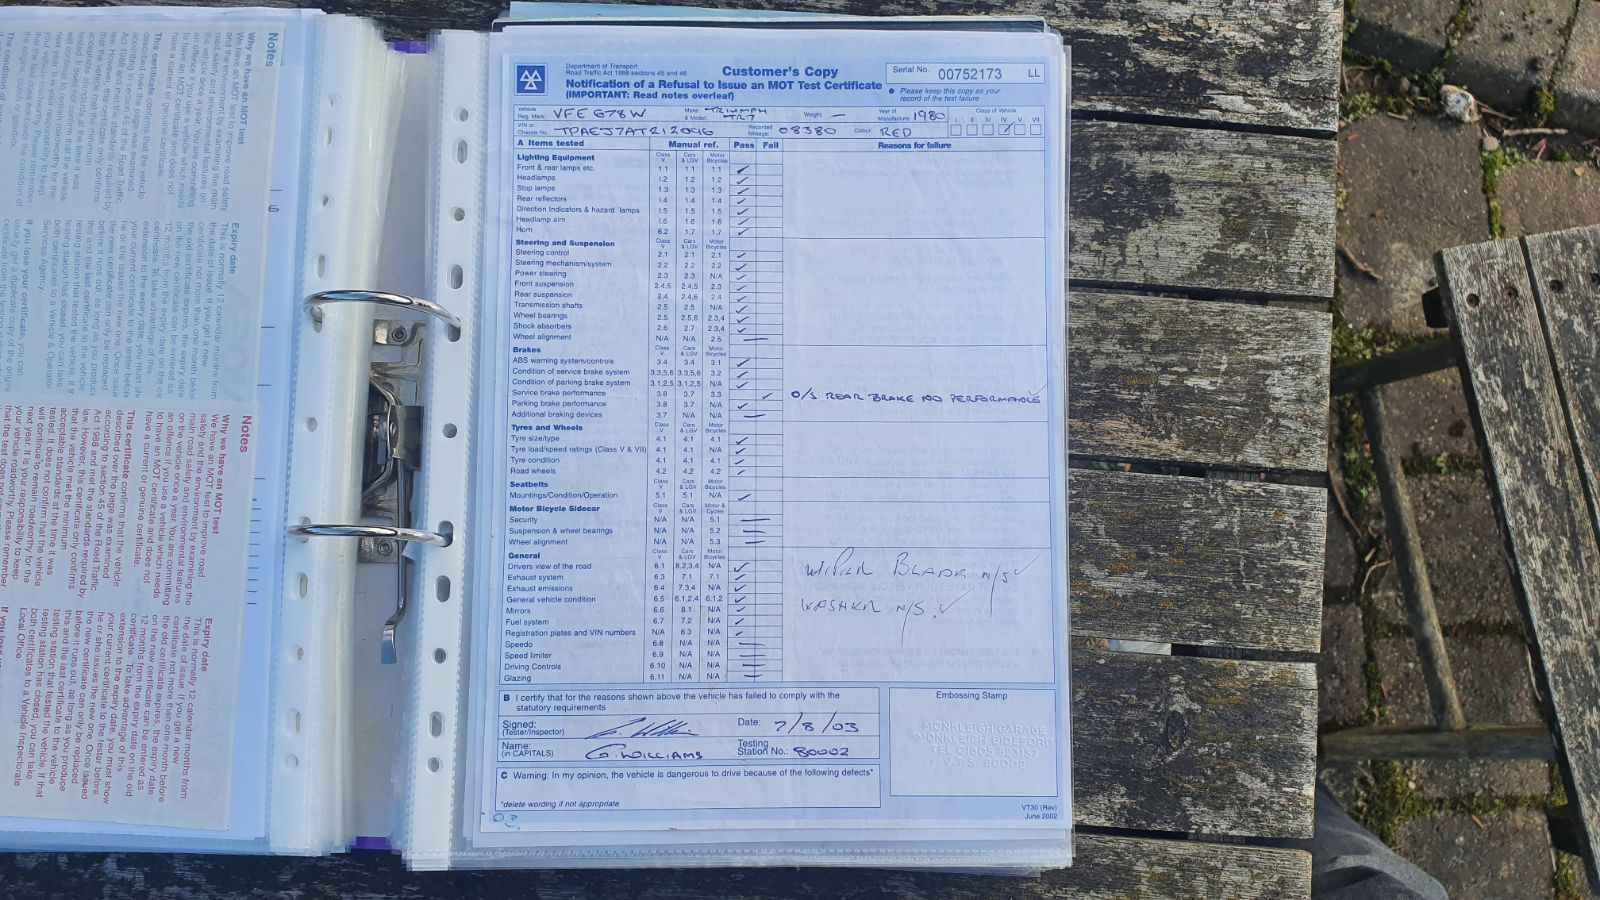 Department of Transport
Road Traffic Act 1988 sections 45 and 46
Customer's Copy
Notification of a Refusal to Issue an MOT Test Certificate
(IMPORTANT: Read notes overleaf)
Serial No. 00752173 LL
● Please keep this copy as your
record of the test failure
Vehicle
Reg. Mark: VFE 678W
Make
& Model: TRIUMPH
TR7
Weight: —
Year of
Manufacture 1980
Class of Vehicle
I II III IV V VII
VIN or
Chassis No.
Recorded
Mileage: 08380
Colour: RED
A Items tested Manual ref. Pass Fail Reasons for failure
Lighting Equipment Class V Cars & LGV Motor Bicycles
Front & rear lamps etc. 1.1 1.1 1.1 ✓
Headlamps 1.2 1.2 1.2 ✓
Stop lamps 1.3 1.3 1.3 ✓
Rear reflectors 1.4 1.4 1.4 ✓
Direction Indicators & hazard lamps 1.5 1.5 1.5 ✓
Headlamp aim 1.6 1.6 1.6 ✓
Horn 6.2 1.7 1.7 ✓
Steering and Suspension Class V Cars & LGV Motor Bicycles
Steering control 2.1 2.1 2.1 ✓
Steering mechanism/system 2.2 2.2 2.2 ✓
Power steering 2.3 2.3 N/A ✓
Front suspension 2.4,5 2.4,5 2.3 ✓
Rear suspension 2.4 2.4,6 2.4 ✓
Transmission shafts 2.5 2.5 N/A ✓
Wheel bearings 2.5 2.5,6 2.3,4 ✓
Shock absorbers 2.6 2.7 2.3,4 ✓
Wheel alignment N/A N/A 2.5 —
Brakes Class V Cars & LGV Motor Bicycles
ABS warning system/controls 3.4 3.4 3.1 ✓
Condition of service brake system 3.3,5,6 3.3,5,6 3.2 ✓
Condition of parking brake system 3.1,2,5 3.1,2,5 N/A ✓
Service brake performance 3.8 3.7 3.3 ✓ O/S REAR BRAKE NO PERFORMANCE
Parking brake performance 3.8 3.7 N/A ✓
Additional braking devices 3.7 N/A N/A —
Tyres and Wheels Class V Cars & LGV Motor Bicycles
Tyre size/type 4.1 4.1 4.1 ✓
Tyre load/speed ratings (Class V & VII) 4.1 4.1 N/A ✓
Tyre condition 4.1 4.1 4.1 ✓
Road wheels 4.2 4.2 4.2 ✓
Seatbelts Class V Cars & LGV Motor Bicycles
Mountings/Condition/Operation 5.1 5.1 N/A ✓
Motor Bicycle Sidecar
Security N/A N/A 5.1 —
Suspension & wheel bearings N/A N/A 5.2 —
Wheel alignment N/A N/A 5.3 —
General Class V Cars & LGV Motor Bicycles
Drivers view of the road 6.1 8.2,3,4 N/A ✓ WIPER BLADE N/S ✓
Exhaust system 6.3 7.1 7.1 ✓
Exhaust emissions 6.4 7.3,4 N/A ✓
General vehicle condition 6.5 6.1,2,4 6.1,2 ✓ WASHER N/S. ✓
Mirrors 6.6 8.1 N/A ✓
Fuel system 6.7 7.2 N/A ✓
Registration plates and VIN numbers N/A 6.3 N/A ✓
Speedo 6.8 N/A N/A —
Speed limiter 6.9 N/A N/A —
Driving Controls 6.10 N/A N/A —
Glazing 6.11 N/A N/A —
B I certify that for the reasons shown above the vehicle has failed to comply with the
statutory requirements
Signed:
(Tester/Inspector)
Date: 7/8/03
Name:
(in CAPITALS) G. WILLIAMS
Testing
Station No.: 80002
C Warning: In my opinion, the vehicle is dangerous to drive because of the following defects*
*delete wording if not appropriate
Embossing Stamp
MONKLEIGH GARAGE
MONKLEIGH BIDEFORD
VT30 (Rev)
June 2002
03
Notes
Why we have an MOT test
We have an MOT test to improve road
safety and the environment by examining the
main road safety and environmental features
on the vehicle once a year. You are committing
an offence if you use a vehicle which needs
to have an MOT certificate and does not
have a current or genuine certificate.
This certificate confirms that the vehicle
described over the page was examined
according to section 45 of the Road Traffic
Act 1988 and met the standards required by
law. However, this certificate only confirms
that the vehicle met the minimum
acceptable standards at the time it was
tested. It does not confirm that the vehicle
will continue to remain roadworthy for the
next year. It is your responsibility to keep
your vehicle roadworthy. Please remember
Expiry date
This is normally 12 calendar months from
the date of issue. If you get a new
certificate not more than one month before
the old certificate expires, the expiry date
on the new certificate can be entered as
12 months from the expiry date on the old
certificate. To take advantage of this
extension to the expiry date, you must show
your current certificate to the tester before
he or she issues the new one. Once issued
the new certificate can only be replaced
before it runs out, as long as you produce
this and the last certificate to the vehicle
testing station that tested the vehicle. If that
testing station has closed, you can take
both certificates to a Vehicle Inspectorate
Local Office.